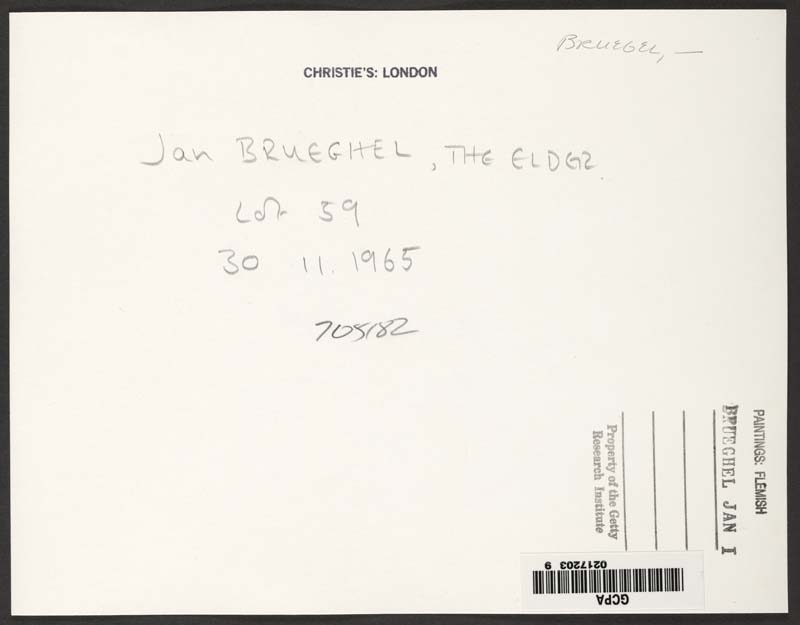 BRUEGEL, —
CHRISTIE'S: LONDON
Jan BRUEGHEL, THE ELDER.
Lot 59
30 11. 1965
705182
PAINTINGS: FLEMISH
BRUEGHEL JAN I
Property of the Getty
Research Institute
GCPA
0217203 9